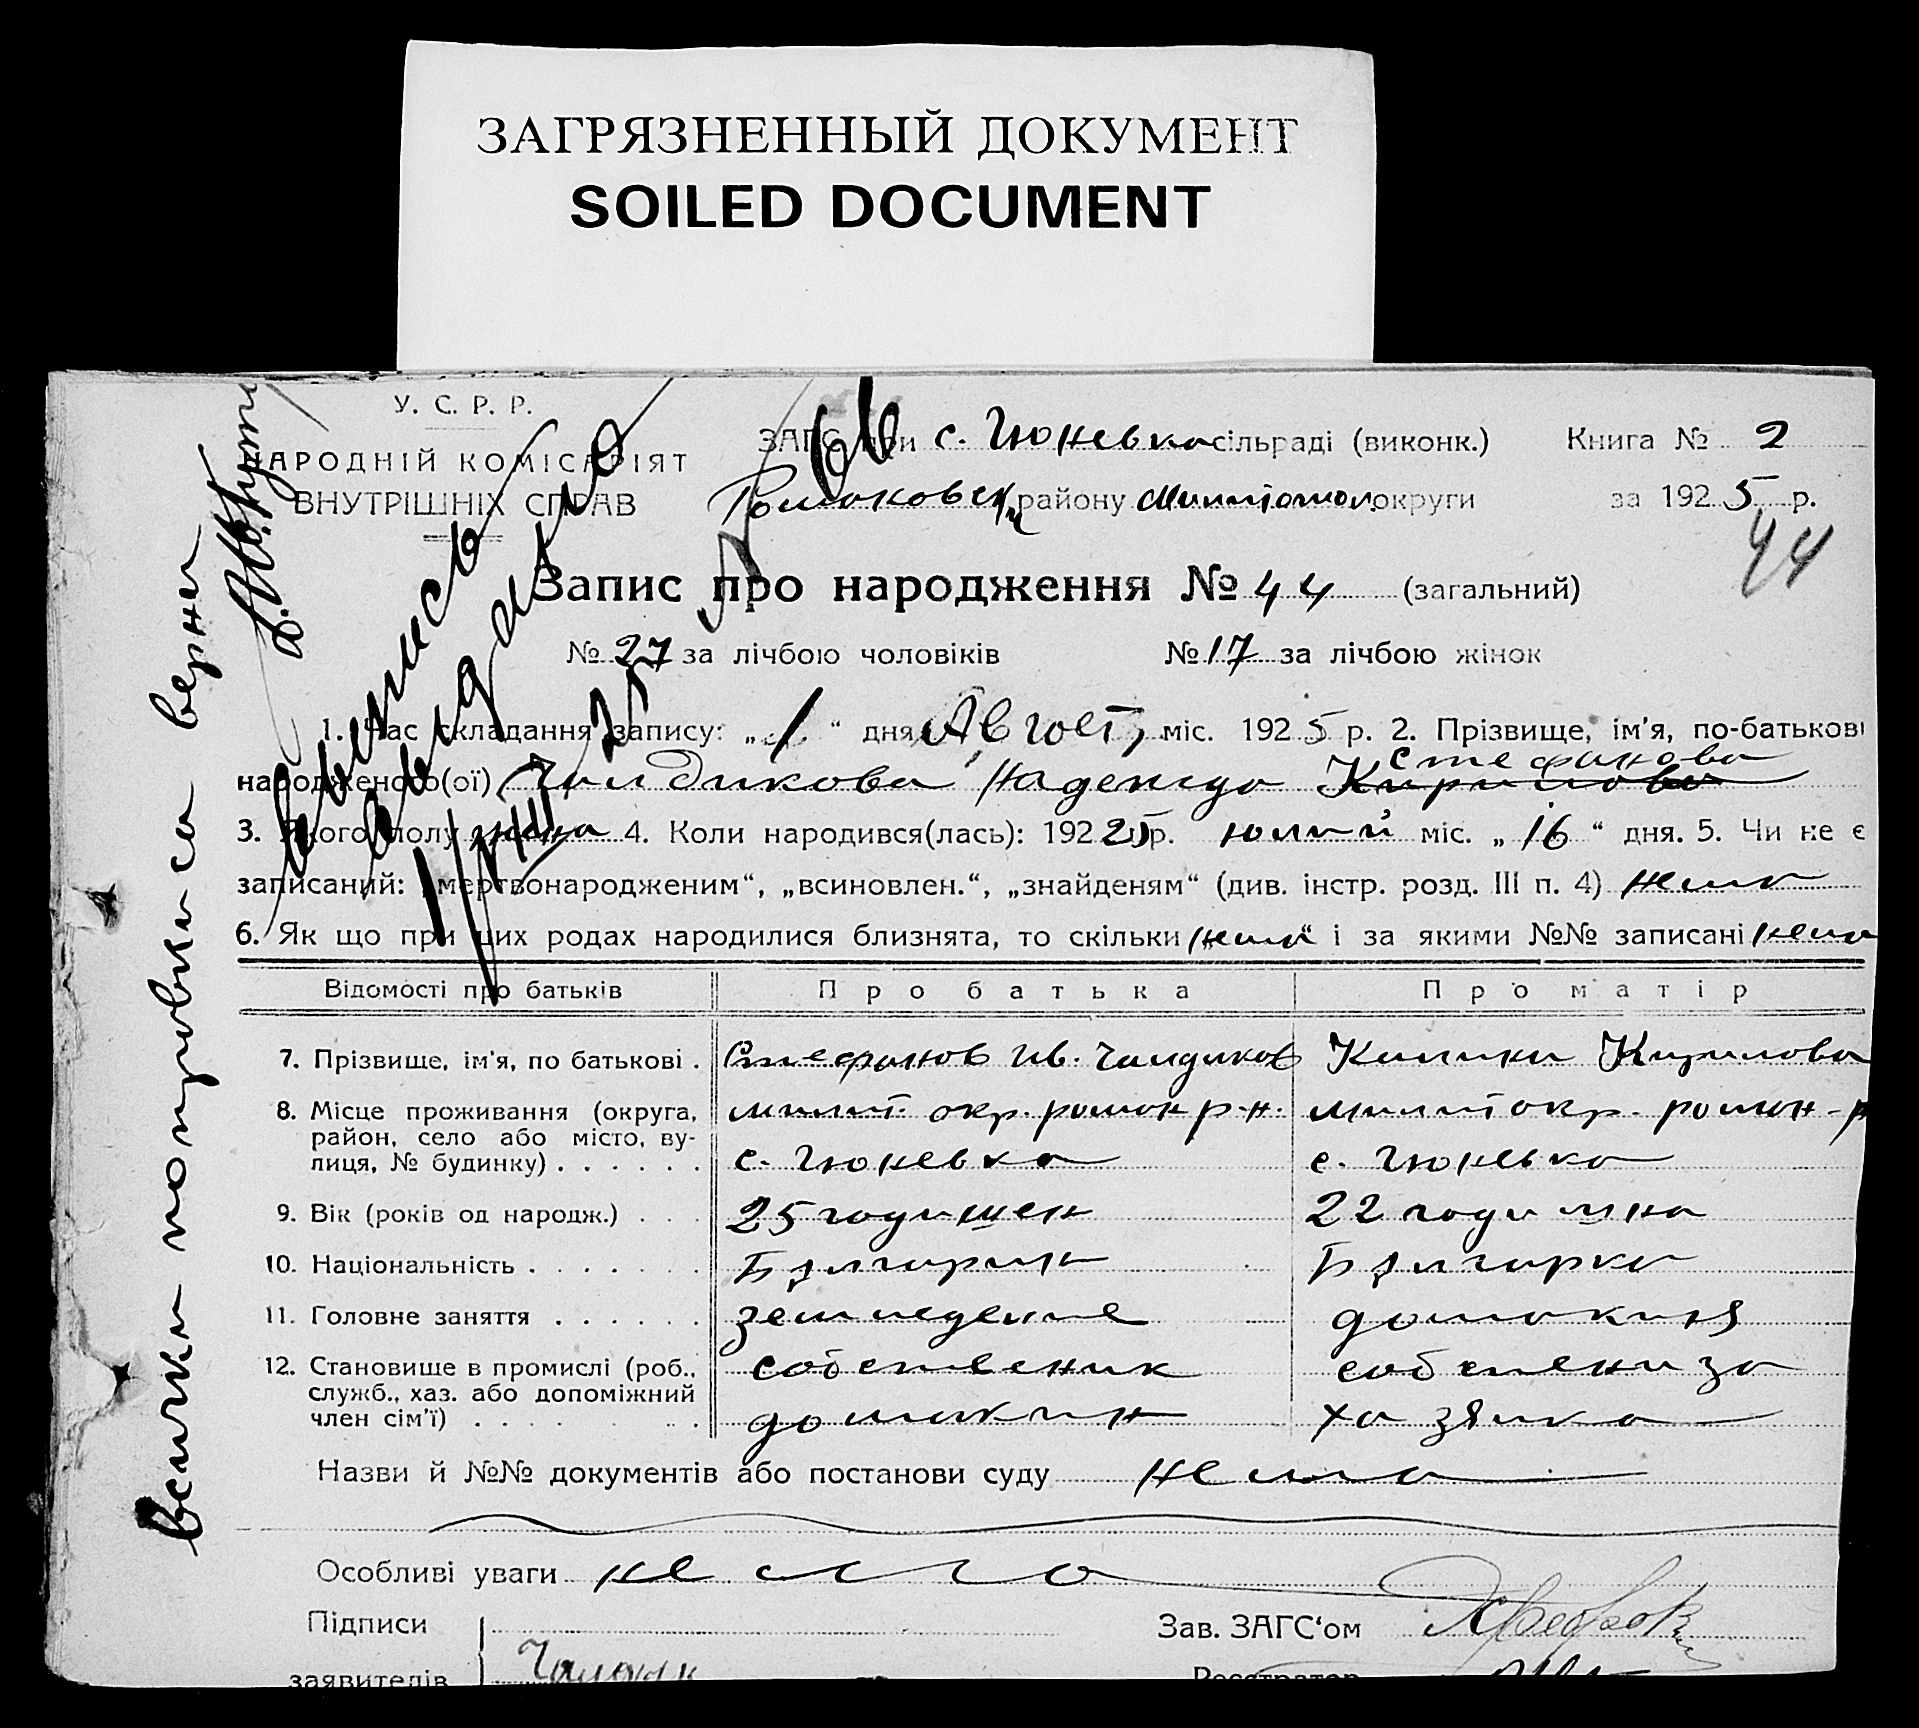 ЗАГРЯЗНЕННЫЙ ДОКУМЕНТ
SOILED DOCUMENT
У. С. Р. Р.
НАРОДНІЙ КОМІСАРІЯТ
ВНУТРІШНІХ СПРАВ
ЗАГС при с. Гюневка сільраді (виконк.) Книга № 2
району округи за 1925 р.
44
Запис про народження № 44 (загальний)
№ 27 за лічбою чоловіків № 17 за лічбою жінок
1. Час складання запису: „1“ дня Август, міс. 1925 р. 2. Прізвище, ім'я, по-батькові
Стефанова
народженого(ої) Чалдикова Надежда Кирилова
3. Якого полу жена 4. Коли народився(лась): 192 25 р. юлий міс. „16“ дня. 5. Чи не є
записаний: „мертвонародженим“, „всиновлен.“, „знайденям“ (див. інстр. розд. III п. 4) нема
6. Як що при цих родах народилися близнята, то скільки „нема“ і за якими №№ записані нема
Відомості про батьків Про батька Про матір
7. Прізвище, ім'я, по батькові . Стефанов Ив. Чалдиков Кирилова
8. Місце проживання (округа, район, село або місто, вулиця, № будинку) . . . . . .
мелит. окр. роман р-н.
с. Гюневка
мелит окр. роман-р
с. Гюневка
9. Вік (років од народж.) . . . 25 годишен 22 годишна
10. Національність . . . . . . . Бѫлгарин Бѫлгарка
11. Головне заняття . . . . . . земледелие домакиня
12. Становище в промислі (роб., служб., хаз. або допоміжний член сім'ї) . . . . .
собственик
домакин
хазяйка
Назви й №№ документів або постанови суду нема
Особливі уваги нема
Підписи
заявителів
Зав. ЗАГС'ом
Реєстратор
выпись
выдана
1/VIII 25
всички поправки са верни